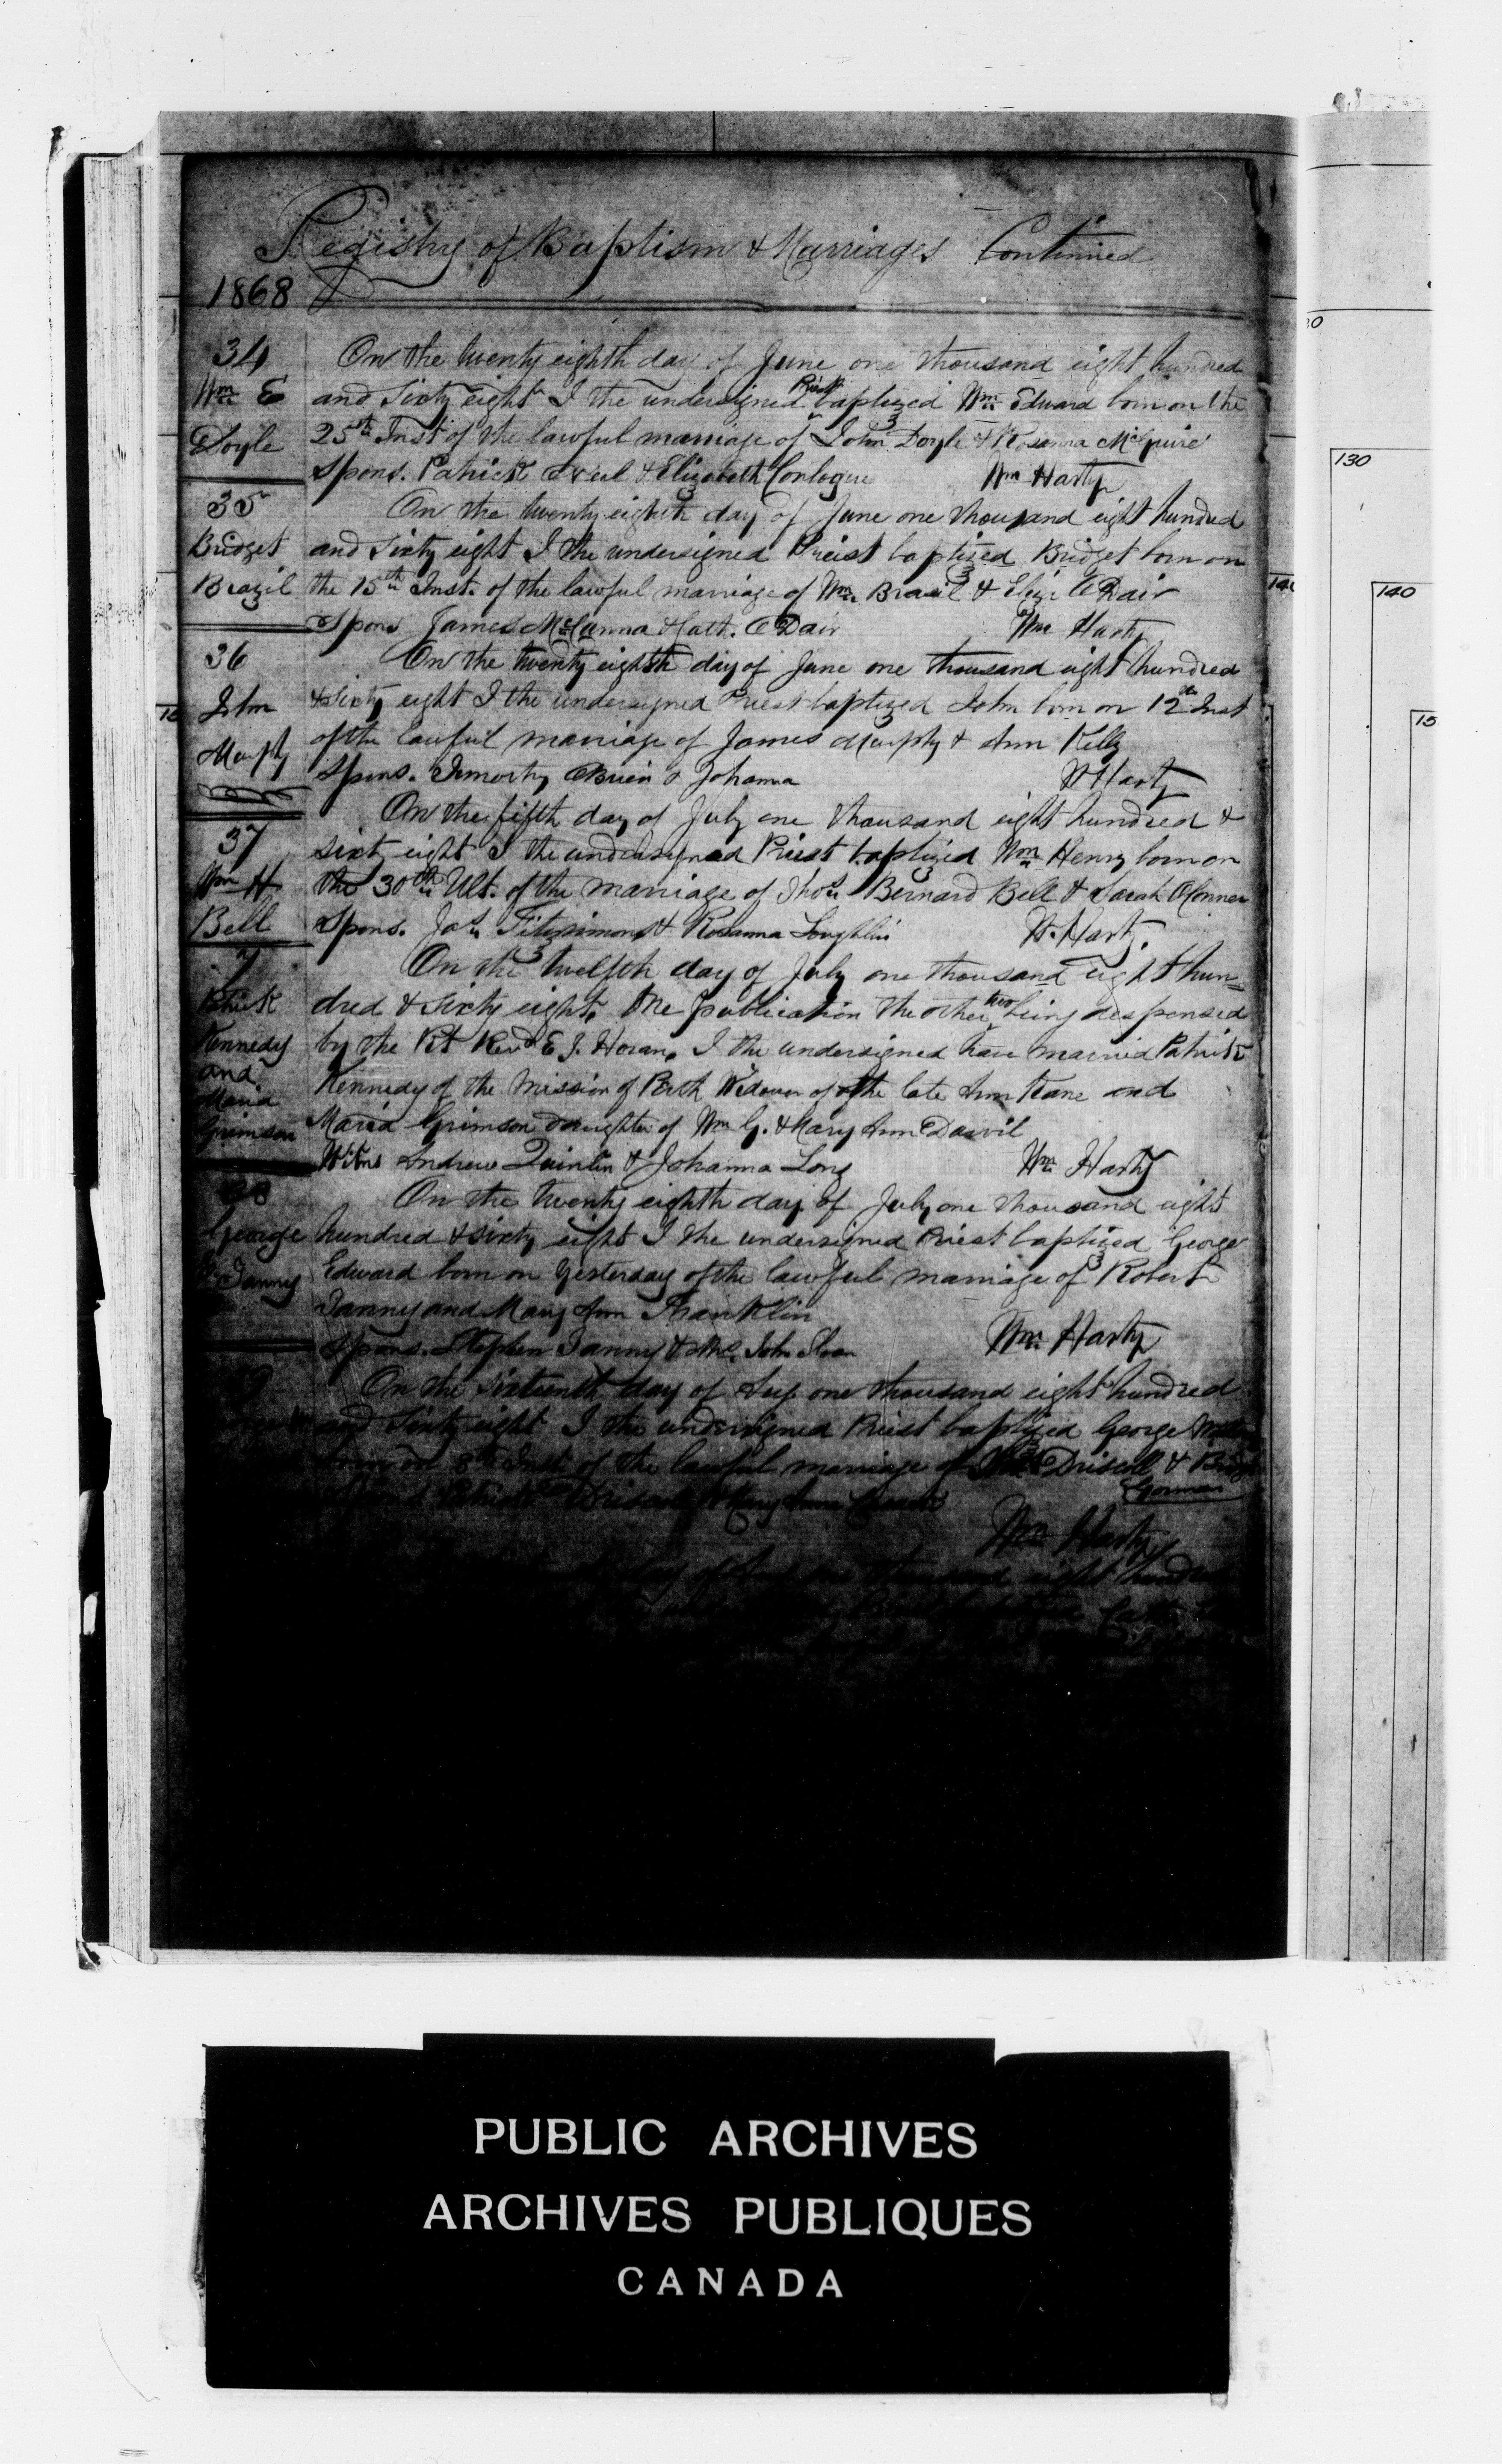 Registry of Baptism & Marriages Continued
1868
34
Wm E
Doyle
On the twenty eighth day of June one thousand eight hundred
and sixty eight I the undersigned Priest baptized Wm Edward born on the
25th Inst of the lawful marriage of John Doyle & Rosanna McGuire
Spons. Patrick & Elizabeth Conlogue Wm Harty
35
Bridget
Brazil
On the twenty eighth day of June one thousand eight hundred
and sixty eight I the undersigned Preist baptized Bridget born on
the 15th Inst. of the lawful marriage of Wm Brazil & Eliz. ODair
Spons James McCanna & Cath. ODair Wm Harty
36
John
Murphy
On the twenty eighth day of June one thousand eight hundred
& sixty eight I the undersigned Priest baptized John born on 12th Inst
of the lawful marriage of James Murphy & Ann Kelly
Spons. Timothy OBrien & Johanna W Harty
37
Wm H
Bell
On the fifth day of July one thousand eight hundred &
sixty eight I the undersigned Priest baptized Wm Henry born on
the 30th Ult. of the marriage of Thos Bernard Bell & Sarah OConner
Spons. Jas Fitzsimons & Rosanna Loughlin W. Harty.
7
Patrick
Kennedy
and
Maria
Grimson
On the twelfth day of July one thousand eight hun=
dred & sixty eight, one publication the other two being despensed
by the Rt Revd E J. Horan, I the undersigned have married Patrick
Kennedy of the Mission of Perth Widower of the late Ann Kane and
Maria Grimson daughter of Wm G. & Mary Ann Darvil
Witns Andrew Quinlin & Johanna Long Wm Harty
38
George
E. Tanny
On the twenty eighth day of July one thousand eight
hundred & sixty eight I the undersigned Priest baptized George
Edward born on Yesterday of the lawful marriage of Robert
Tanny and Mary Ann Franklin
Spons. Stephen Tanny & Mrs. John Sloan Wm Harty
39
On the sixteenth day of Aug one thousand eight hundred
and sixty eight I the undersigned Priest baptized George
born on 8th Inst of the lawful marriage of Driscoll &
Gorman
Spons Patrick Driscoll & Mary Anne
Wm Harty
day of one thousand eight hundred
130
140
15
PUBLIC ARCHIVES
ARCHIVES PUBLIQUES
CANADA